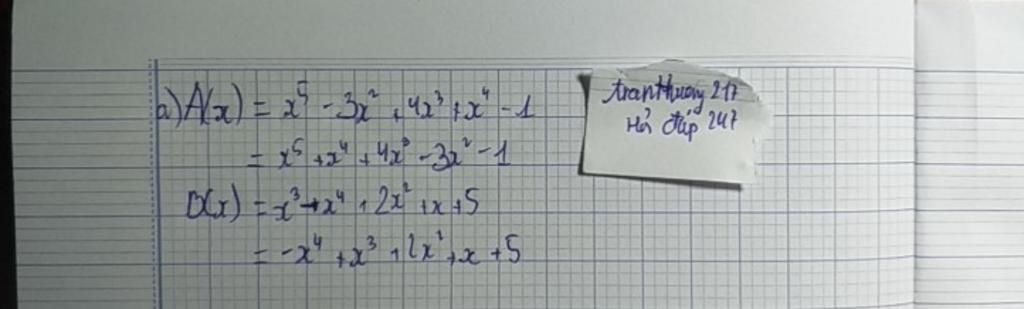 a) A(x) = x⁵ - 3x² + 4x³ + x⁴ - 1
= x⁵ + x⁴ + 4x³ - 3x² - 1
D(x) = x³ - x⁴ + 2x² + x + 5
= -x⁴ + x³ + 2x² + x + 5
tranthuong 217
Hỏi đáp 247